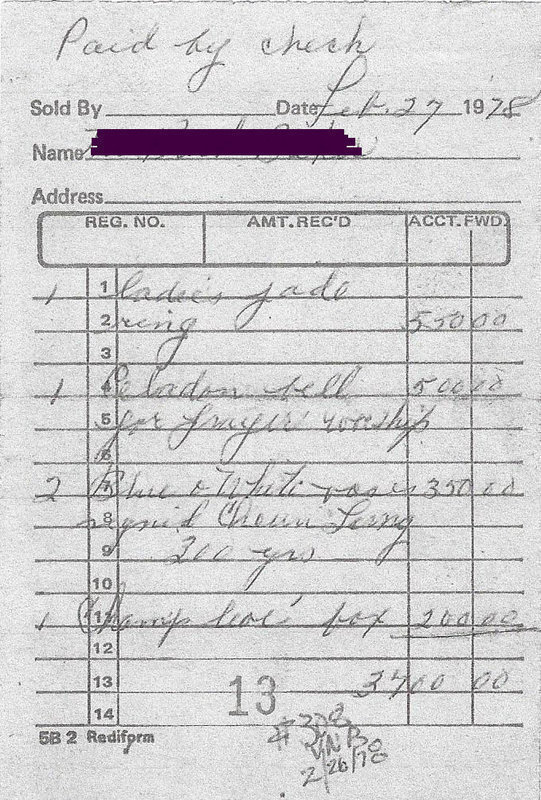 Paid by check
Sold By Date Feb. 27 1978
Name
Address
REG. NO. AMT. REC'D ACCT. FWD.
1 1 ladies jade
2 ring 550 00
3
1 4 Celadon bell 500 00
5 for prayer worship
6
2 7 Blue & White vases 350 00
8 signed Cheun Lung
9 200 yrs
10
1 11 Champleve' box 200 00
12
13 3700 00
14 13
5B 2 Rediform
#308
VNB
2/28/78